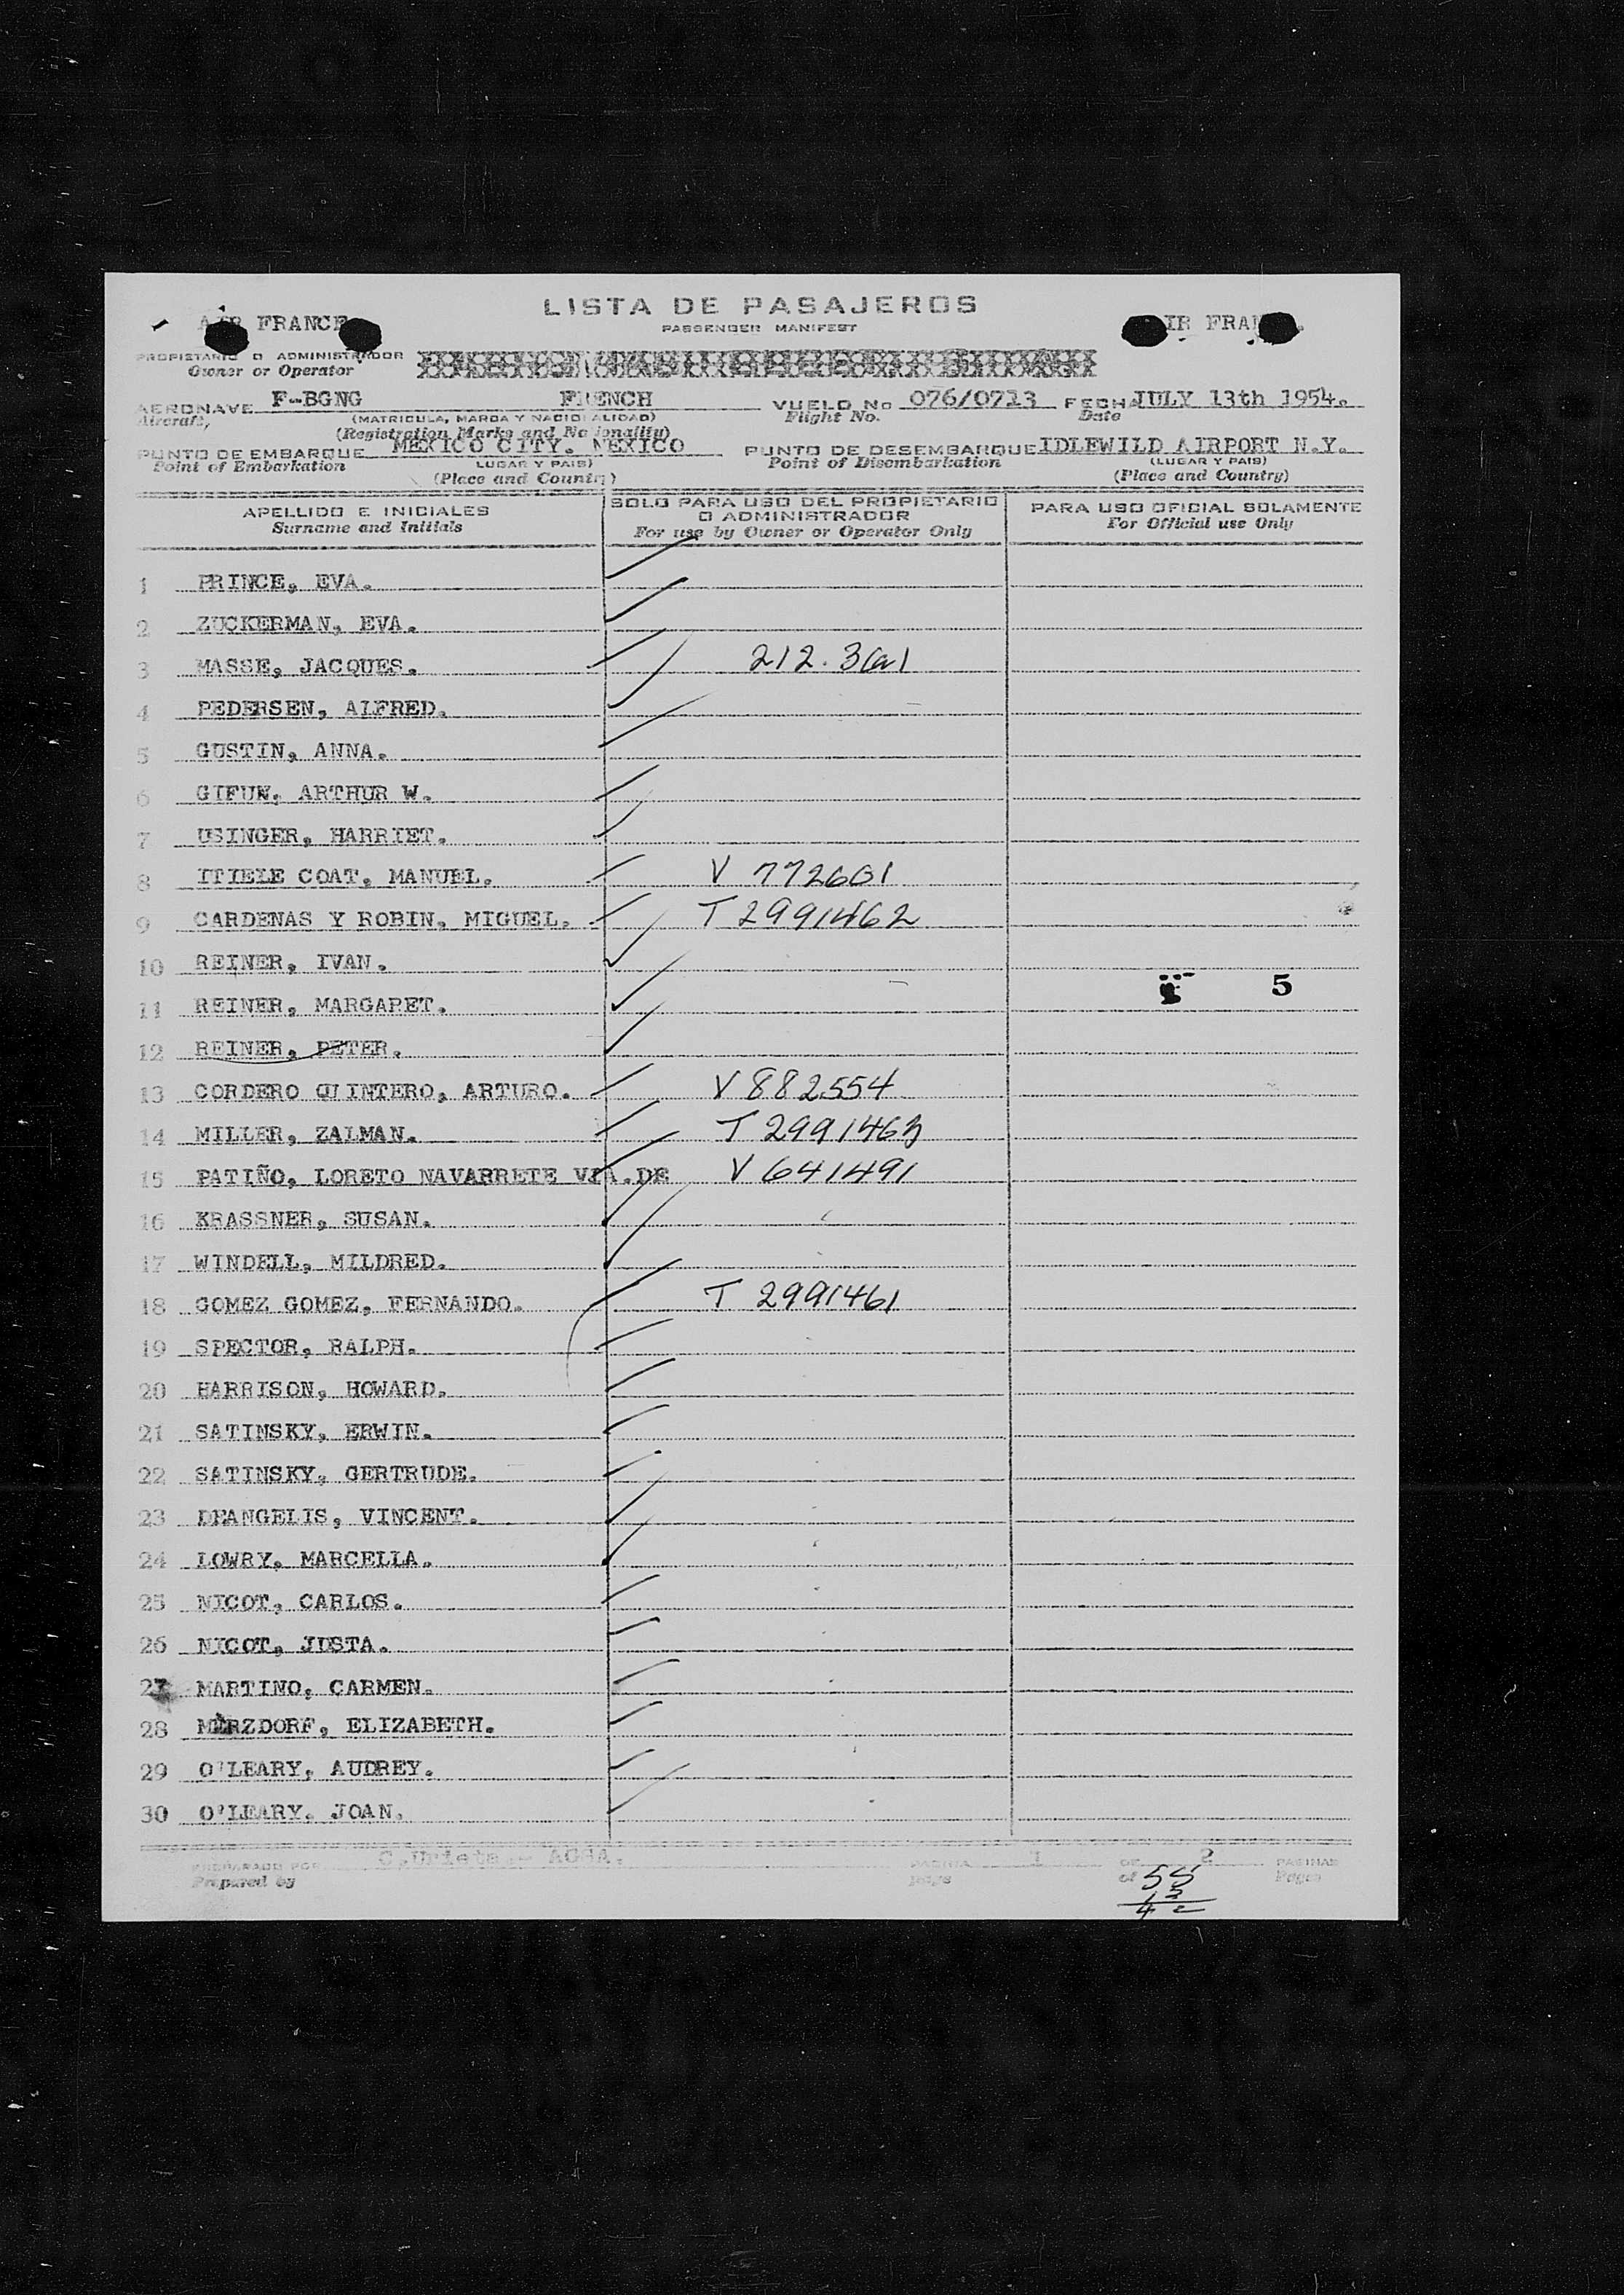 LISTA DE PASAJEROS
PASSENGER MANIFEST
AIR FRANCE
AIR FRANCE.
PROPIETARIO O ADMINISTRADOR
Owner or Operator
AERONAVE F-BGNG FRENCH VUELO No 076/0713 FECHA JULY 13th 1954.
Aircraft, (MATRICULA, MARCA Y NACIONALIDAD) Flight No. Date
(Registration Marks and Nationality)
PUNTO DE EMBARQUE MEXICO CITY. MEXICO PUNTO DE DESEMBARQUE IDLEWILD AIRPORT N.Y.
Point of Embarkation (LUGAR Y PAIS) Point of Disembarkation (LUGAR Y PAIS)
(Place and Country) (Place and Country)
APELLIDO E INICIALES SOLO PARA USO DEL PROPIETARIO PARA USO OFICIAL SOLAMENTE
Surname and Initials O ADMINISTRADOR For Official use Only
For use by Owner or Operator Only
1 PRINCE, EVA.
2 ZUCKERMAN, EVA.
3 MASSE, JACQUES. 212.3(a)
4 PEDERSEN, ALFRED.
5 GUSTIN, ANNA.
6 GIFUN, ARTHUR W.
7 USINGER, HARRIET.
8 ITIELE COAT, MANUEL. V 772601
9 CARDENAS Y ROBIN, MIGUEL. T 2991462
10 REINER, IVAN.
11 REINER, MARGARET. 5
12 REINER, PETER.
13 CORDERO QUINTERO, ARTURO. V 882554
14 MILLER, ZALMAN. T 2991463
15 PATIÑO, LORETO NAVARRETE VIA.DE V 641491
16 KRASSNER, SUSAN.
17 WINDELL, MILDRED.
18 GOMEZ GOMEZ, FERNANDO. T 2991461
19 SPECTOR, RALPH.
20 HARRISON, HOWARD.
21 SATINSKY, ERWIN.
22 SATINSKY, GERTRUDE.
23 DEANGELIS, VINCENT.
24 LOWRY, MARCELLA.
25 NICOT, CARLOS.
26 NICOT, JUSTA.
27 MARTINO, CARMEN.
28 MERZDORF, ELIZABETH.
29 O'LEARY, AUDREY.
30 O'LEARY. JOAN.
PREPARADO POR C.Urieta.- AGSA. PAGINA 1 DE 2 PAGINAS
Prepared by page of Pages
55
13
42